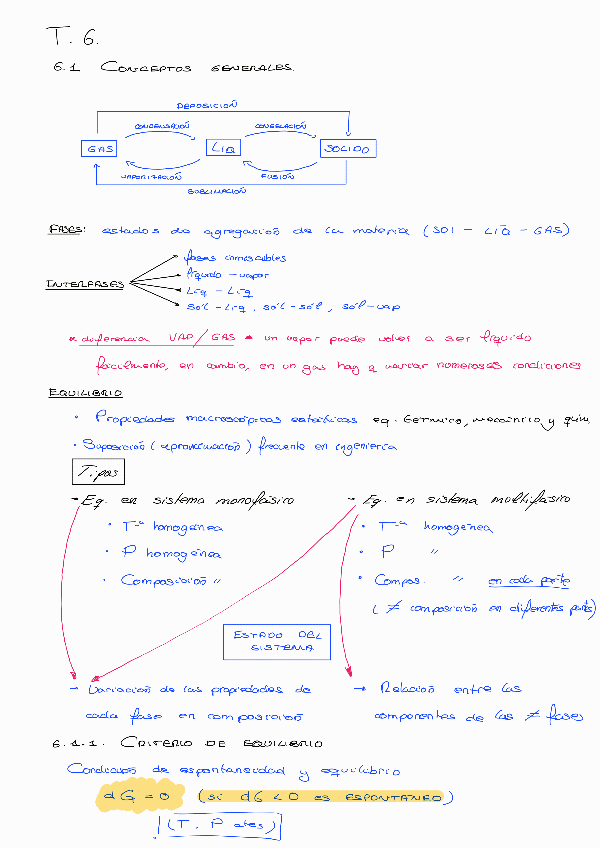 T. 6.
6.1 CONCEPTOS GENERALES.
DEPOSICIÓN
CONDENSACIÓN CONGELACIÓN
GAS LIQ SOLIDO
VAPORIZACIÓN FUSIÓN
SUBLIMACIÓN
FASES: estados de agregación de la materia (SOL - LÍQ - GAS)
fases inmiscibles
líquido - vapor
INTERFASES
Líq - Líq
Sól - Líq, sól - sól, sól - vap
* diferencia VAP/GAS → un vapor puede volver a ser líquido
fácilmente, en cambio, en un gas hay q variar numerosas condiciones
EQUILIBRIO
• Propiedades macroscópicas estáticas eq. térmico, mecánico y quím.
• Suposición (aproximación) frecuente en ingeniería
Tipos
- Eq. en sistema monofásico
• Tª homogénea
• P homogénea
• Composición "
- Eq. en sistema multifásico
• Tª homogénea
• P "
• Compos. " en cada parte
( ≠ composición en diferentes parts)
ESTADO DEL
SISTEMA
→ Variación de las propiedades de
cada fase en composición
→ Relación entre las
componentes de las ≠ fases
6.1.1. CRITERIO DE EQUILIBRIO
Condiciones de espontaneidad y equilibrio
dG = 0 (si dG < 0 es ESPONTÁNEO)
(T, P ctes)